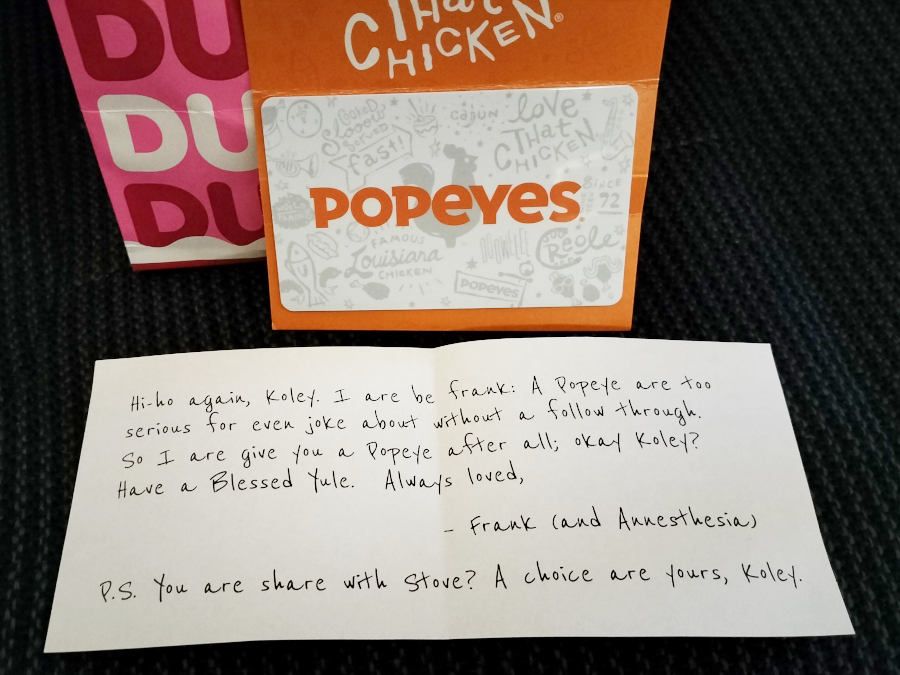 DU
DU
DU
THAT
CHICKEN®
COOKED
Slooow
SERVED
fast!
CAJUN
love
THAT
CHICKEN
SINCE
72
POPEYES
FAMOUS
Louisiana
CHICKEN
Creole
POPEYES
Hi-ho again, Koley. I are be frank: A Popeye are too
serious for even joke about without a follow through.
So I are give you a Popeye after all; okay Koley?
Have a Blessed Yule. Always loved,
- Frank (and Annesthesia)
P.S. You are share with Stove? A choice are yours, Koley.